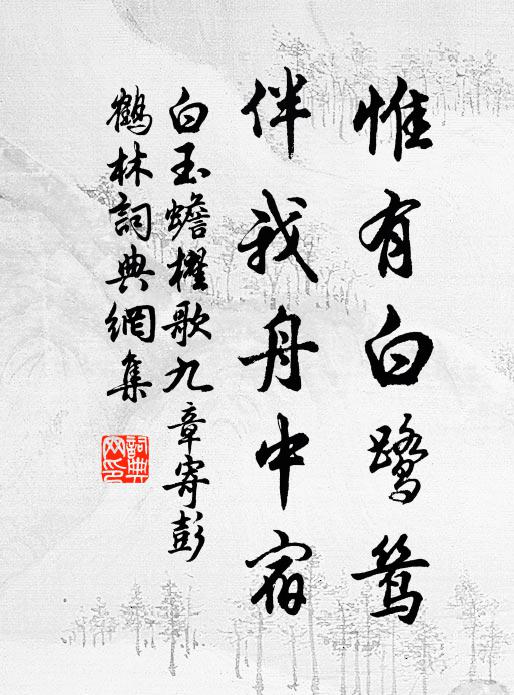 惟有白鷺鷥
伴我舟中宿
白玉蟾櫂歌九章寄彭
鶴林詞典網集
詞典
网印